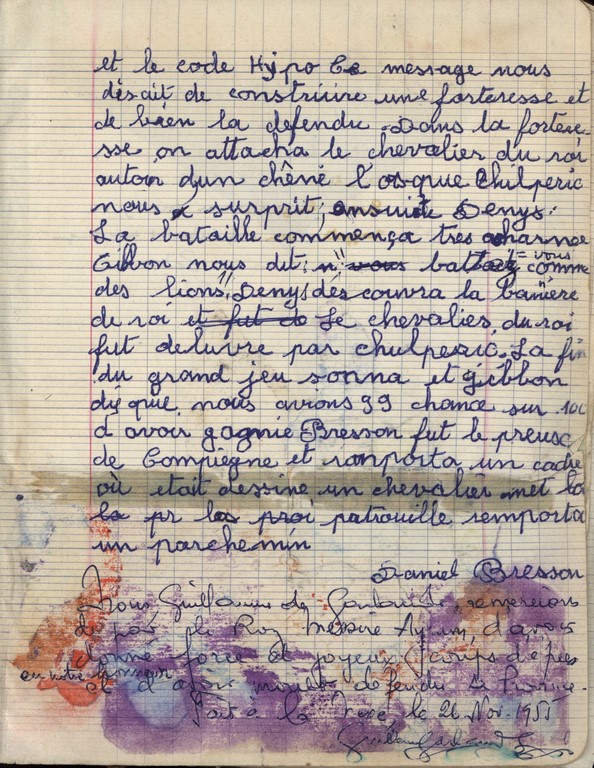 et le code Hypo Ce message nous
désait de constriuire une forteresse et
de bien la defendu. Dans la fortere-
sse on attacha le chevalier du roi
autour d'un chêne l'orsque Chilperic
nous surprit, ensuite Denys.
La bataille commença tres acharnée
Gibbon nous dit: "vous comme
des lions", Denys découvra la banière
de roi et fut de Le chevalier, du roi
fut delivre par chulperic. La fin
du grand jeu sonna et gibbon
dis que, nous avons 99 chance sur 100
d'avoir gagnie Bresson fut le preusc
de Compiegne et ramporta un cadre
où etait dessine un chevalier met la
la pr las patrouille remporta
un parchemin
Daniel Bresson
Nous Guillaume de remercions
de par le Roy messire d'avoir
donné force et joyeux coups d'épée
en notre honneur
et d'avoir moult defendu
Fait à la le 26 Nov. 1955